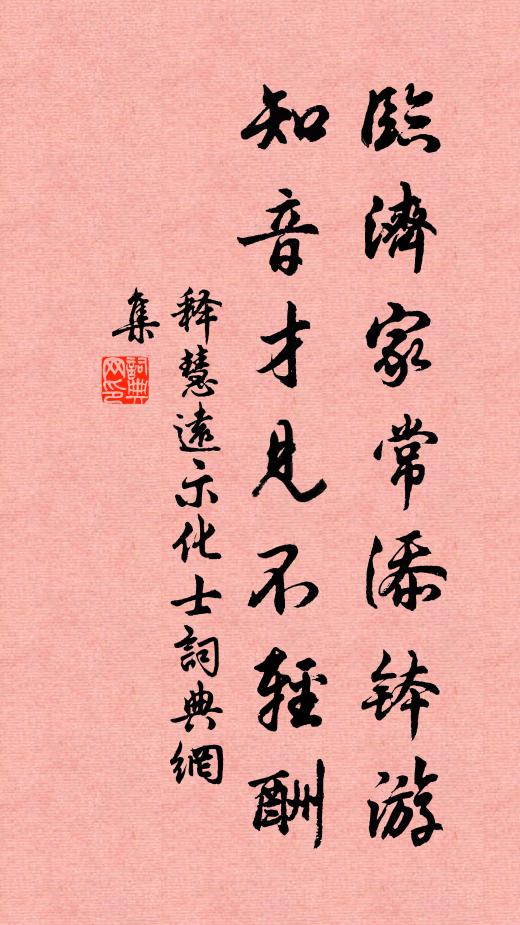 臨濟家常添鉢游
知音才見不輕酬
釋慧遠示化士詞典網
集
詞典網印